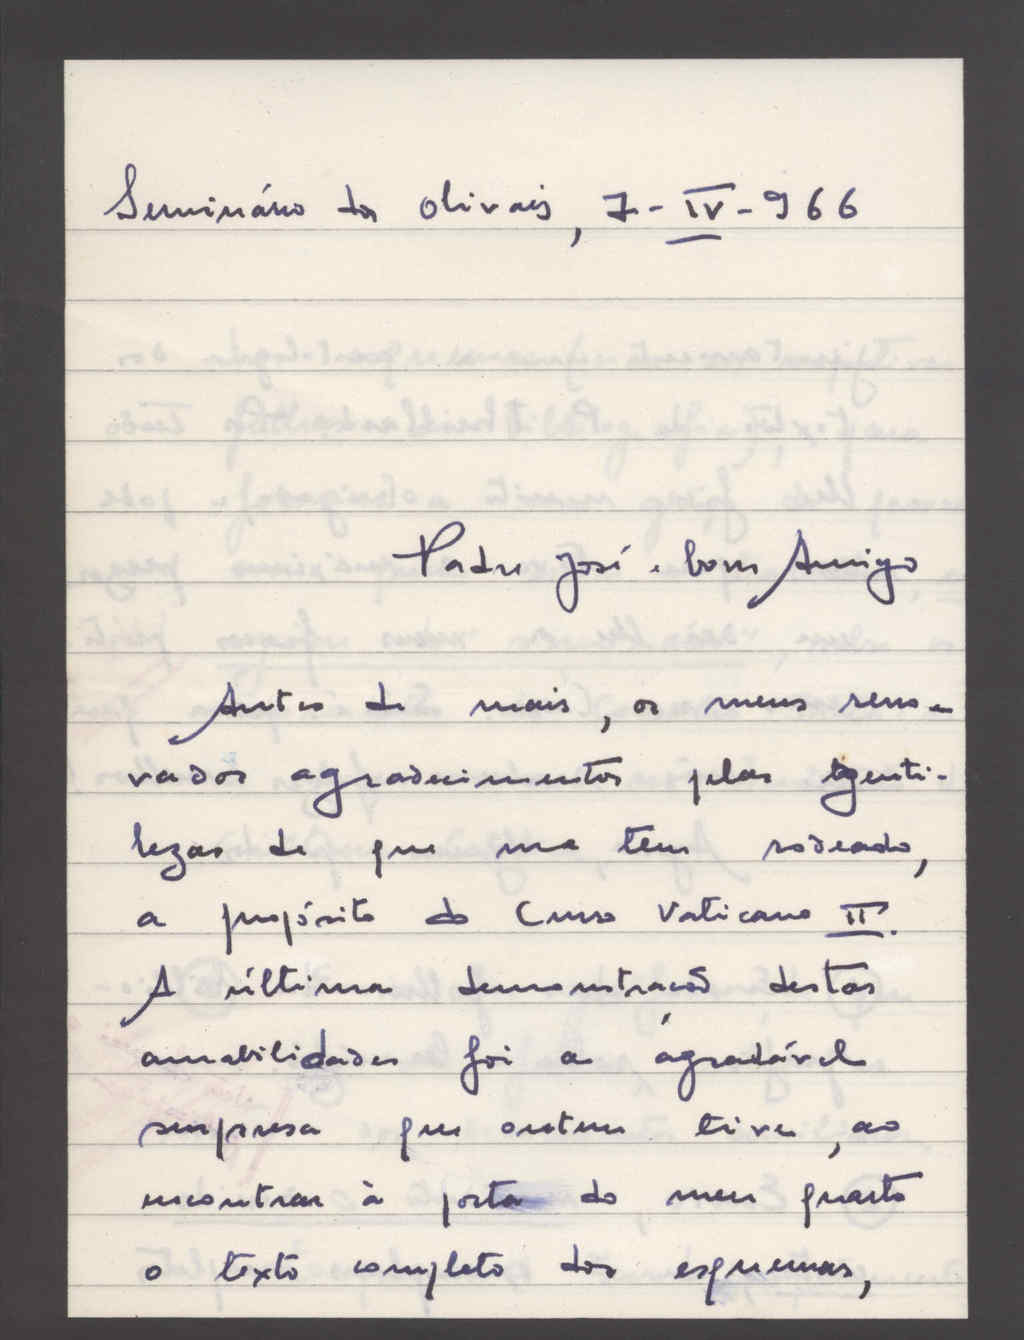 Seminário dos Olivais, 7-IV-966
Padre José e bom Amigo
Antes de mais, os meus reno-
vados agradecimentos pelas genti-
lezas de que me tem rodeado,
a propósito do Curso Vaticano II.
A última demonstração destas
amabilidades foi a agradável
surpresa que ontem tive, ao
encontrar à porta do meu quarto
o texto completo dos esquemas,